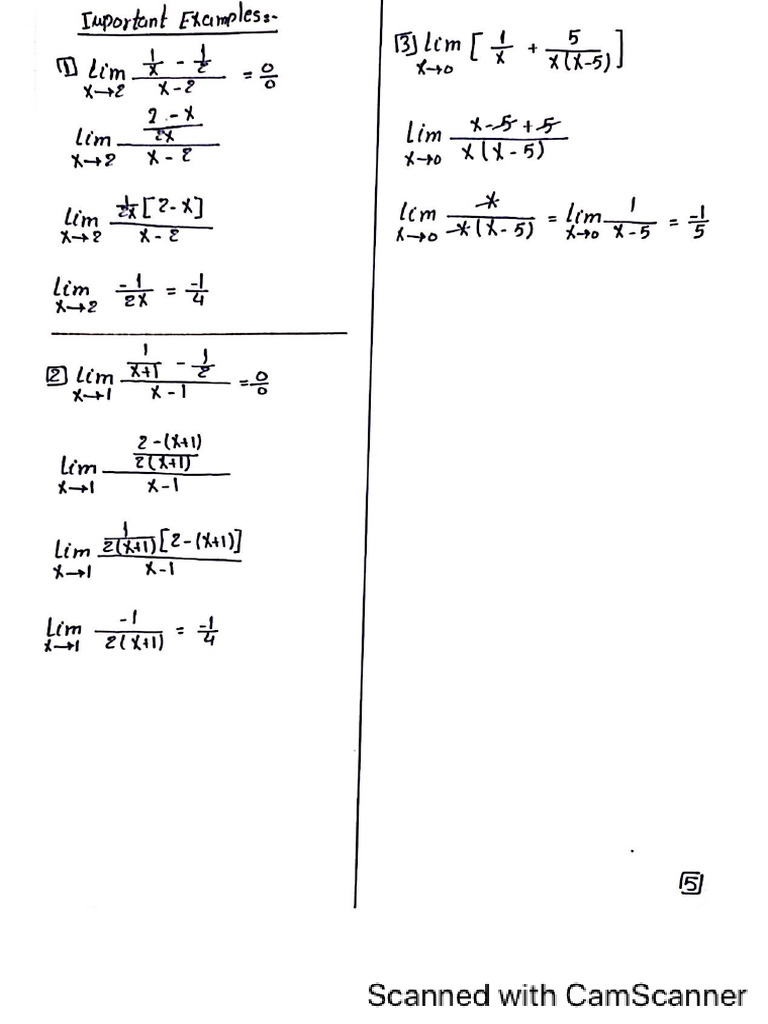 Important Examples:-
[1] lim x→2 (1/x - 1/2)/(x-2) = 0/0
lim x→2 ((2-x)/2x)/(x-2)
lim x→2 (1/2x [2-x])/(x-2)
lim x→2 -1/2x = -1/4
[2] lim x→1 (1/(x+1) - 1/2)/(x-1) = 0/0
lim x→1 ((2-(x+1))/(2(x+1)))/(x-1)
lim x→1 (1/(2(x+1)) [2-(x+1)])/(x-1)
lim x→1 -1/(2(x+1)) = -1/4
[3] lim x→0 [1/x + 5/(x(x-5))]
lim x→0 (x-5+5)/(x(x-5))
lim x→0 x/(x(x-5)) = lim x→0 1/(x-5) = -1/5
[5]
Scanned with CamScanner